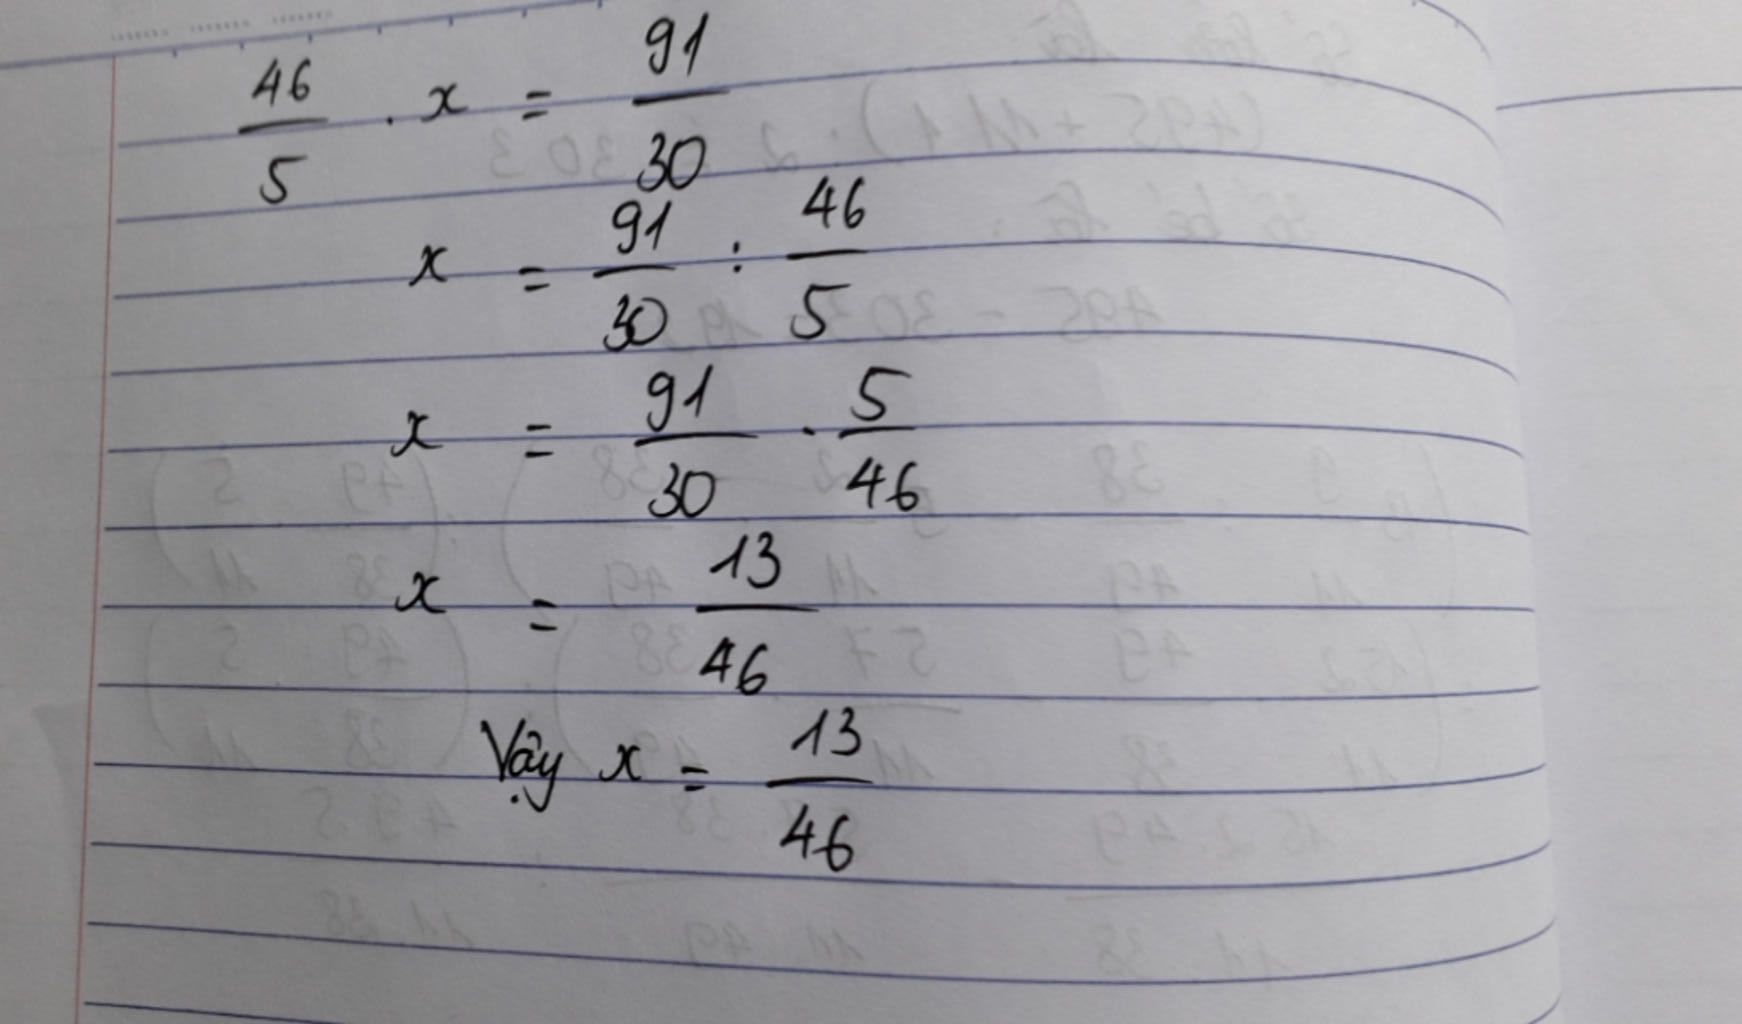 46/5 . x = 91/30
x = 91/30 : 46/5
x = 91/30 . 5/46
x = 13/46
Vậy x = 13/46